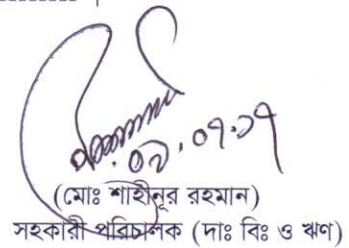 ০২.০৭.১৭
(মোঃ শাহীনূর রহমান)
সহকারী পরিচালক (দাঃ বিঃ ও ঋণ)